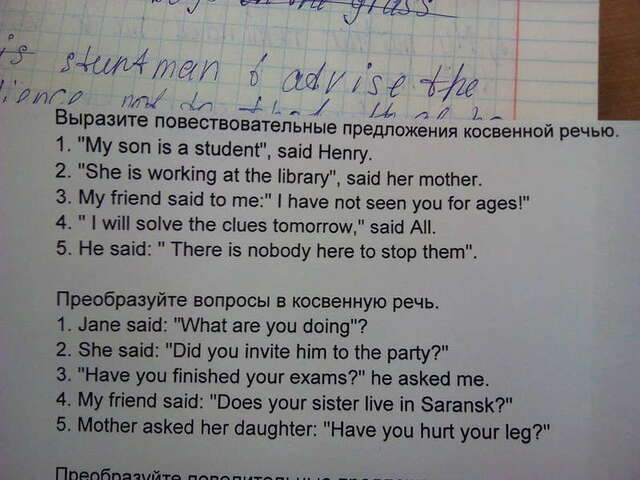 on the grass
is stuntman advise the
Выразите повествовательные предложения косвенной речью.
1. "My son is a student", said Henry.
2. "She is working at the library", said her mother.
3. My friend said to me:" I have not seen you for ages!"
4. " I will solve the clues tomorrow," said All.
5. He said: " There is nobody here to stop them".
Преобразуйте вопросы в косвенную речь.
1. Jane said: "What are you doing"?
2. She said: "Did you invite him to the party?"
3. "Have you finished your exams?" he asked me.
4. My friend said: "Does your sister live in Saransk?"
5. Mother asked her daughter: "Have you hurt your leg?"
Преобразуйте